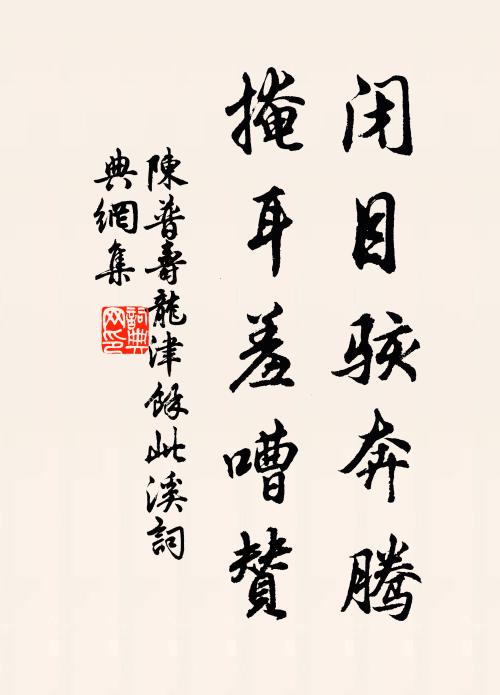 闭目骇奔腾
掩耳羞嘈赞
陳普壽龍津餘此溪詞
典網集
詞典網印